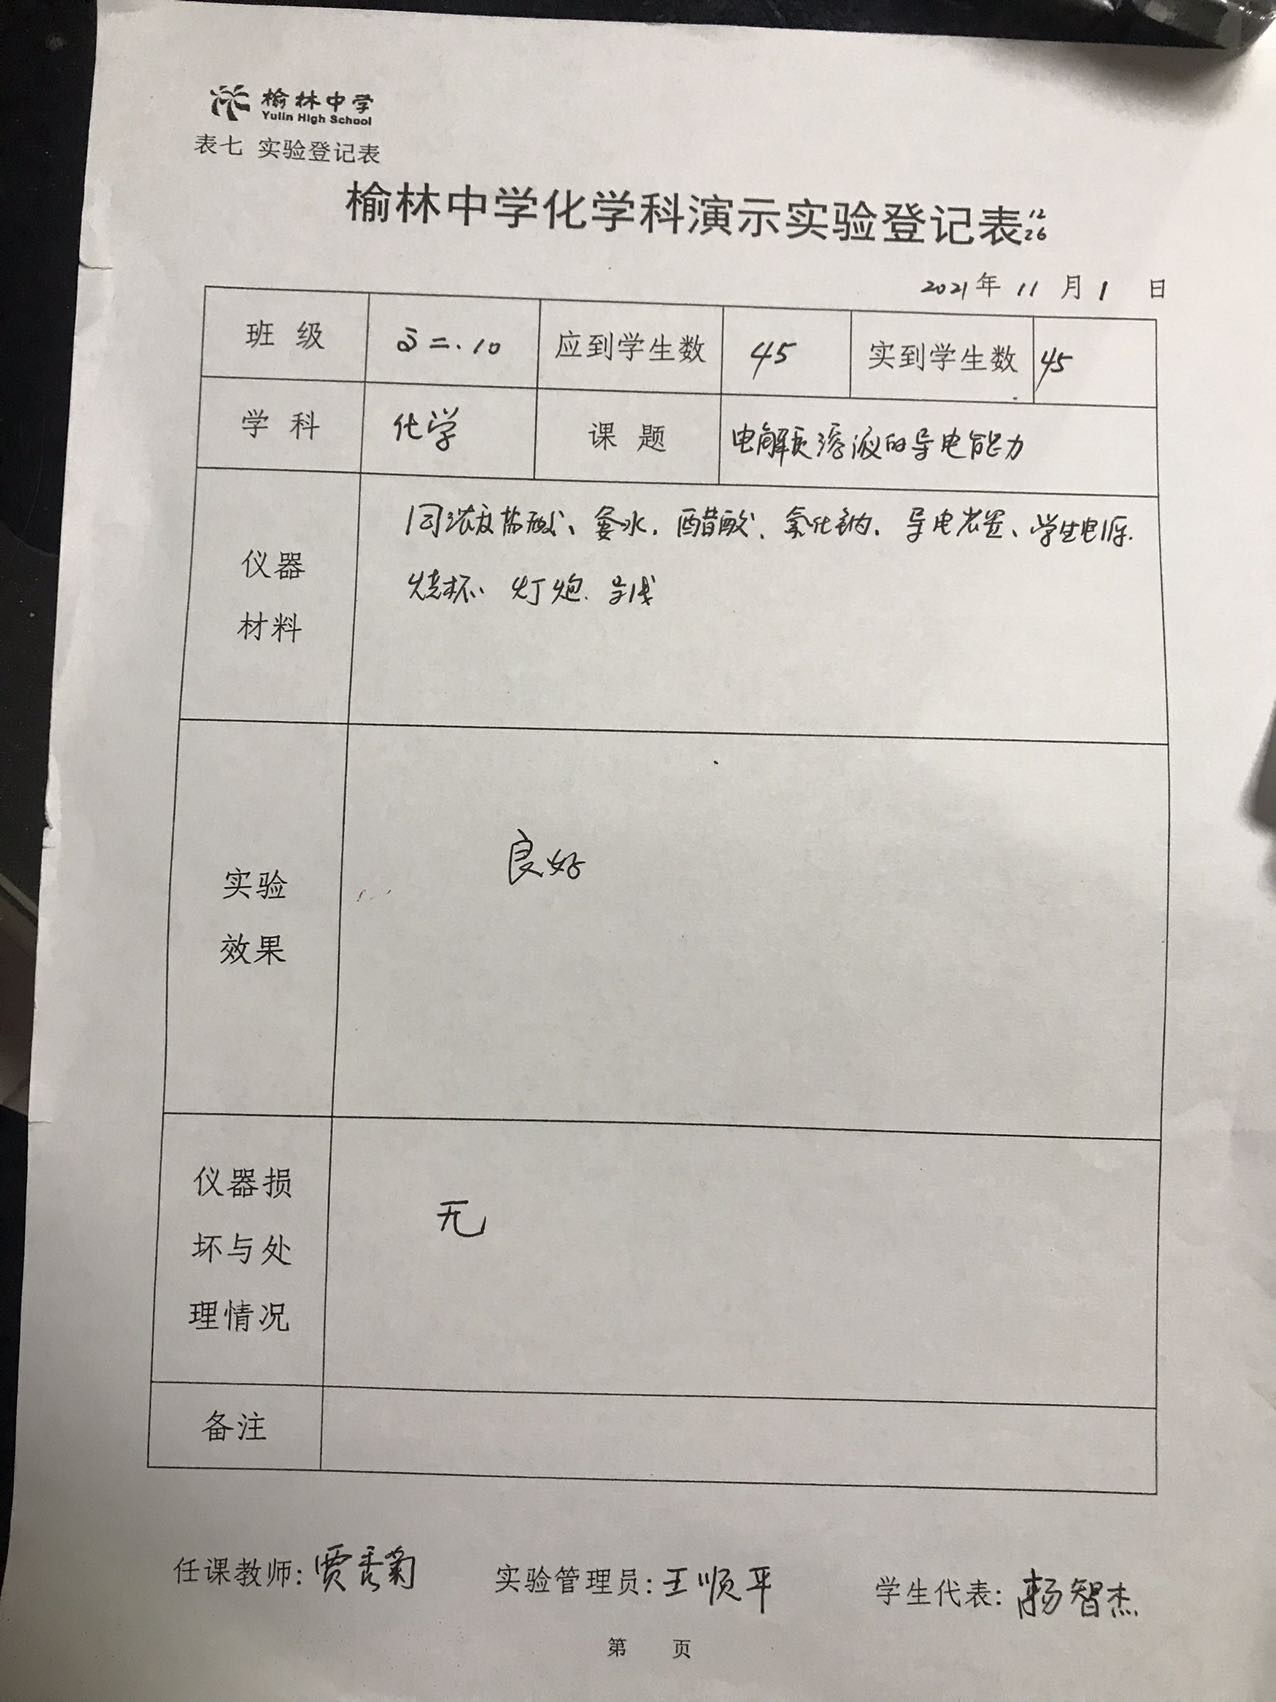 榆林中学
Yulin High School
表七 实验登记表
榆林中学化学科演示实验登记表 12
26
2021年 11 月 1 日
班 级 高二.10 应到学生数 45 实到学生数 45
学 科 化学 课 题 电解质溶液的导电能力
仪器
材料
同浓度盐酸、氨水、醋酸、氯化钠、导电装置、学生电源、
烧杯、灯炮、导线
实验
效果
良好
仪器损
坏与处
理情况
无
备注
任课教师:贾秀菊 实验管理员:王顺平 学生代表:杨智杰
第 页